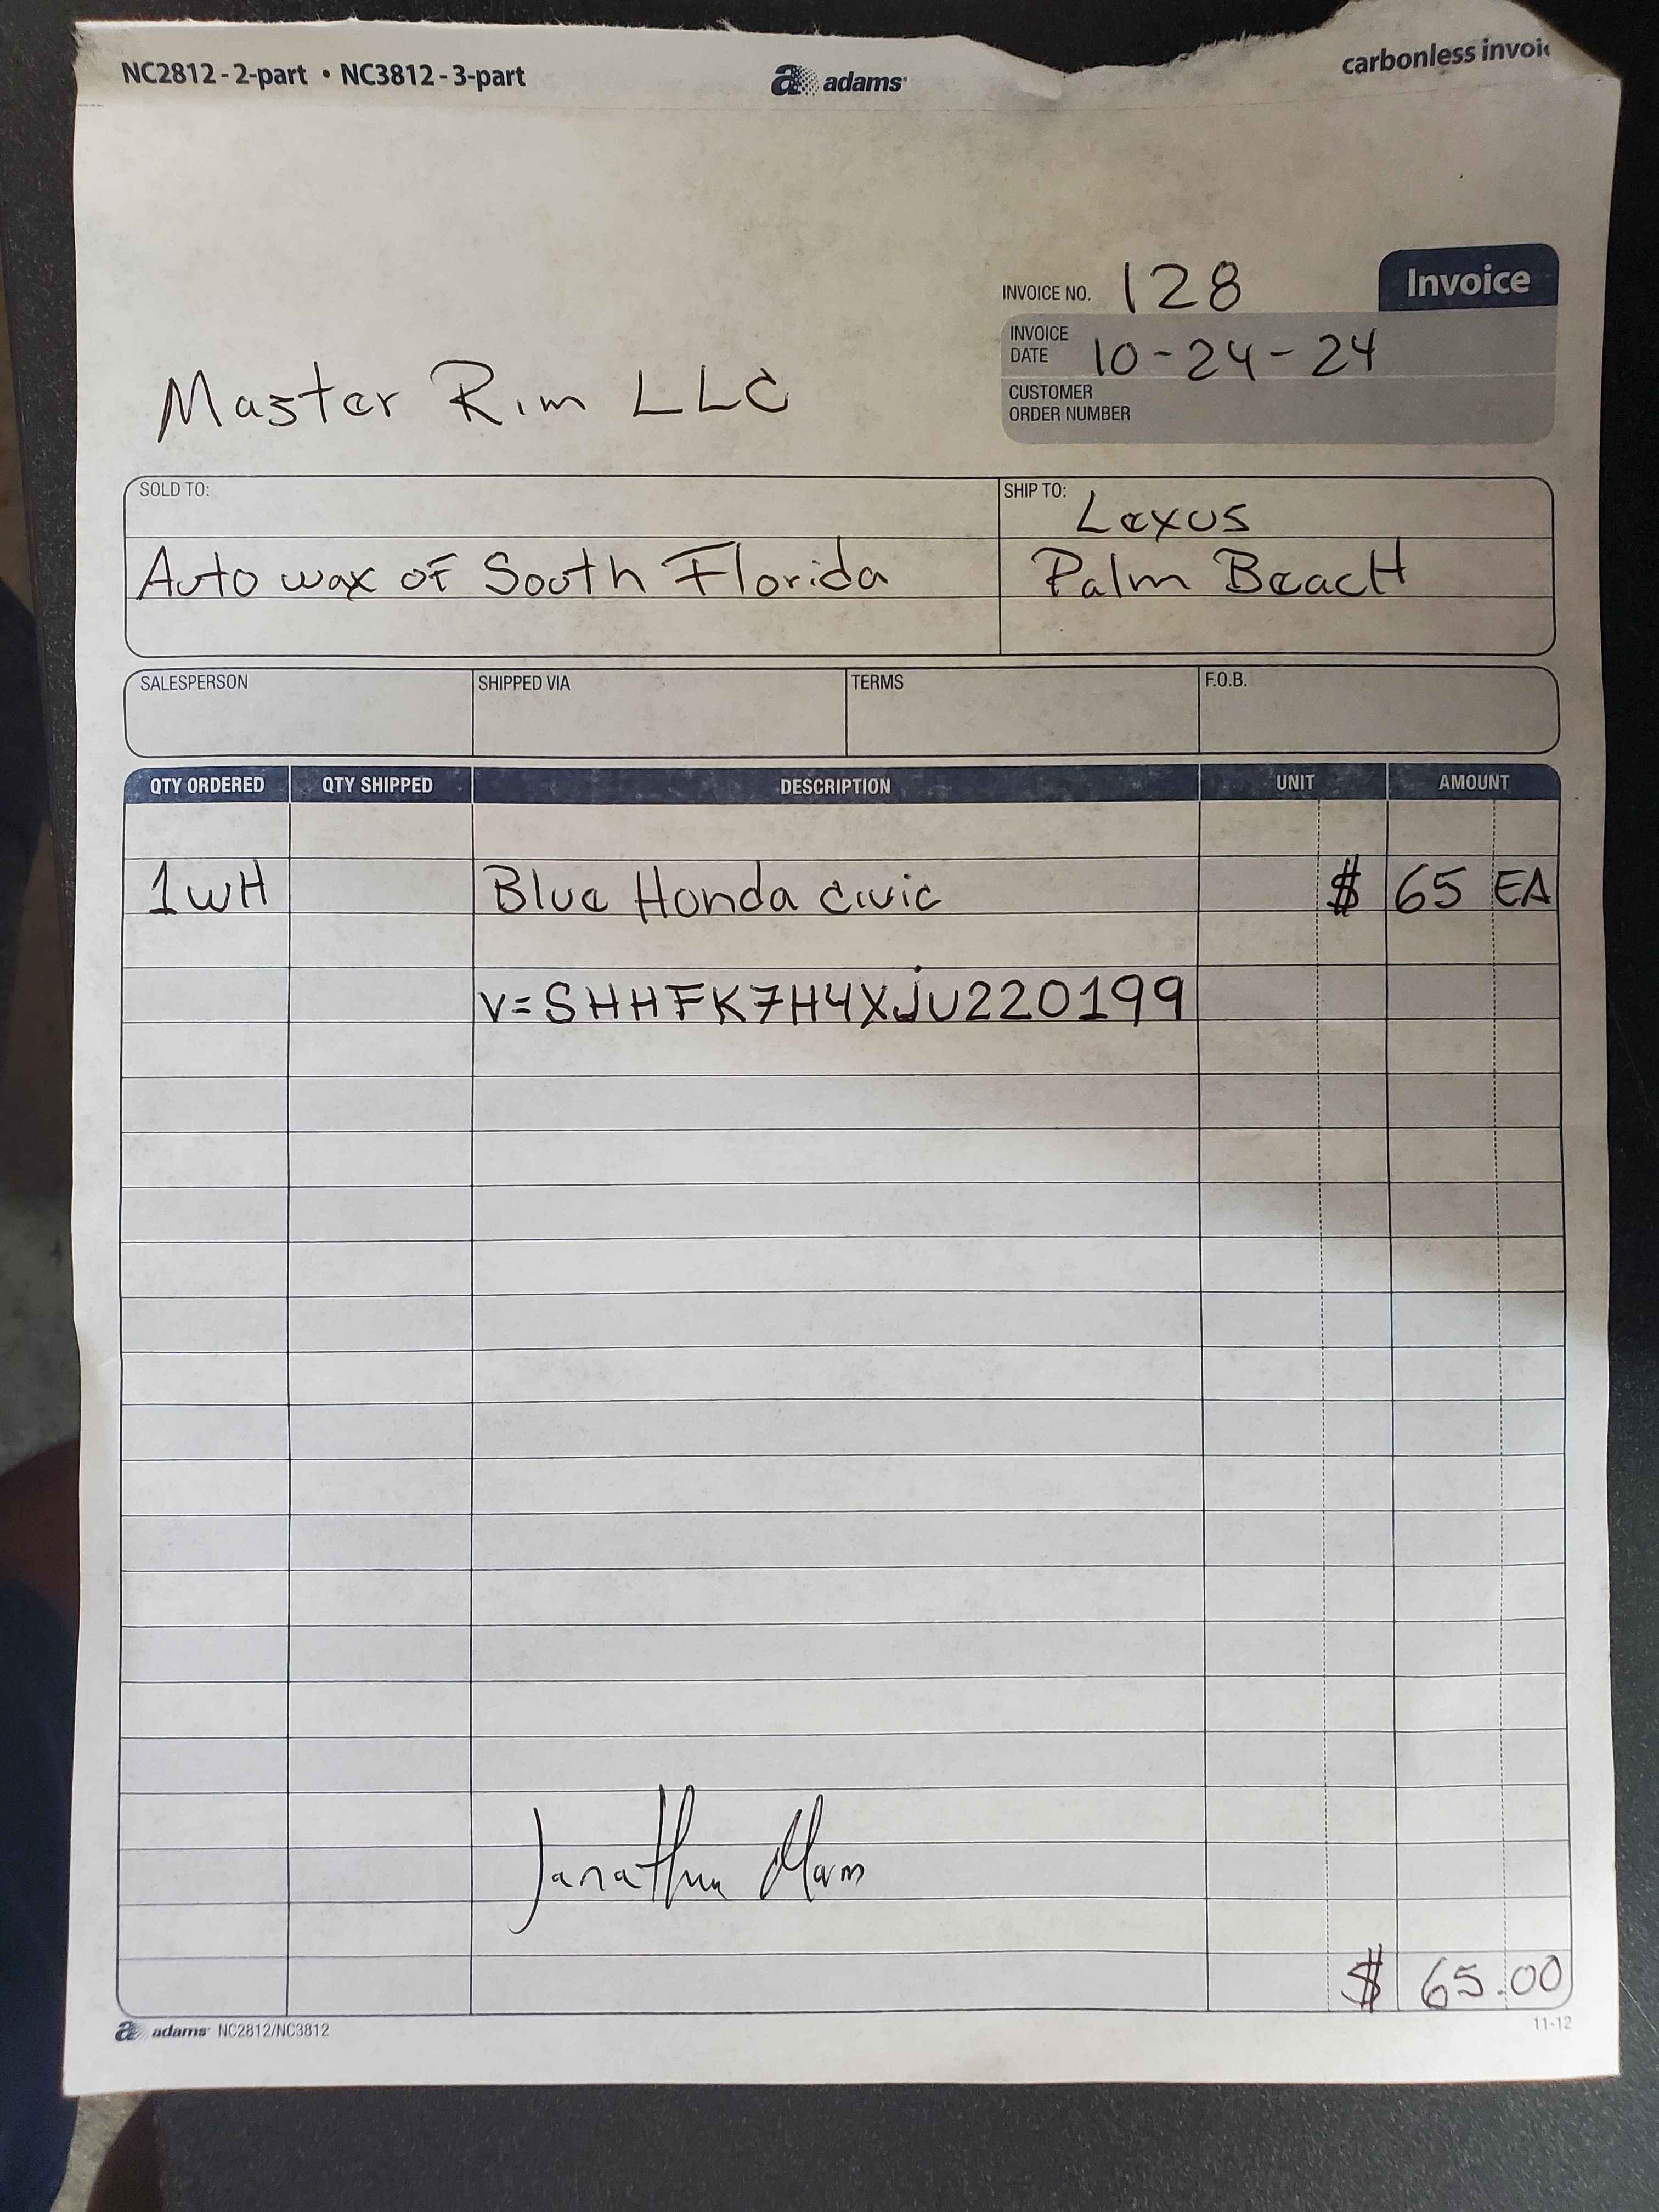 NC2812 - 2-part • NC3812 - 3-part
adams
carbonless invoic
INVOICE NO. 128
Invoice
INVOICE DATE 10-24-24
CUSTOMER ORDER NUMBER
Master Rim LLC
SOLD TO:
Auto wax of South Florida
SHIP TO: Lexus
Palm Beach
SALESPERSON SHIPPED VIA TERMS F.O.B.
QTY ORDERED QTY SHIPPED DESCRIPTION UNIT AMOUNT
1WH Blue Honda civic $ 65 EA
V=SHHFK7H4XJU220199
$ 65.00
adams NC2812/NC3812
11-12